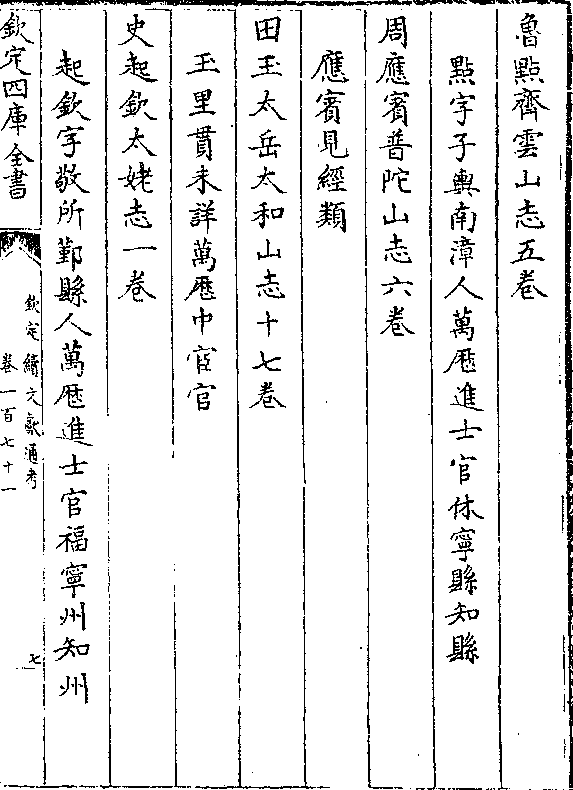 魯點齊雲山志五卷
點字子輿南漳人萬厯進士官休寧縣知縣
周應賓普陀山志六卷
應賓見經類
田玉太岳太和山志十七卷
玉里貫未詳萬厯中宦官
史起欽太姥志一卷
起欽字敬所鄞縣人萬厯進士官福寧州知州
欽定四庫全書
欽定續文獻通考
卷一百七十一
七